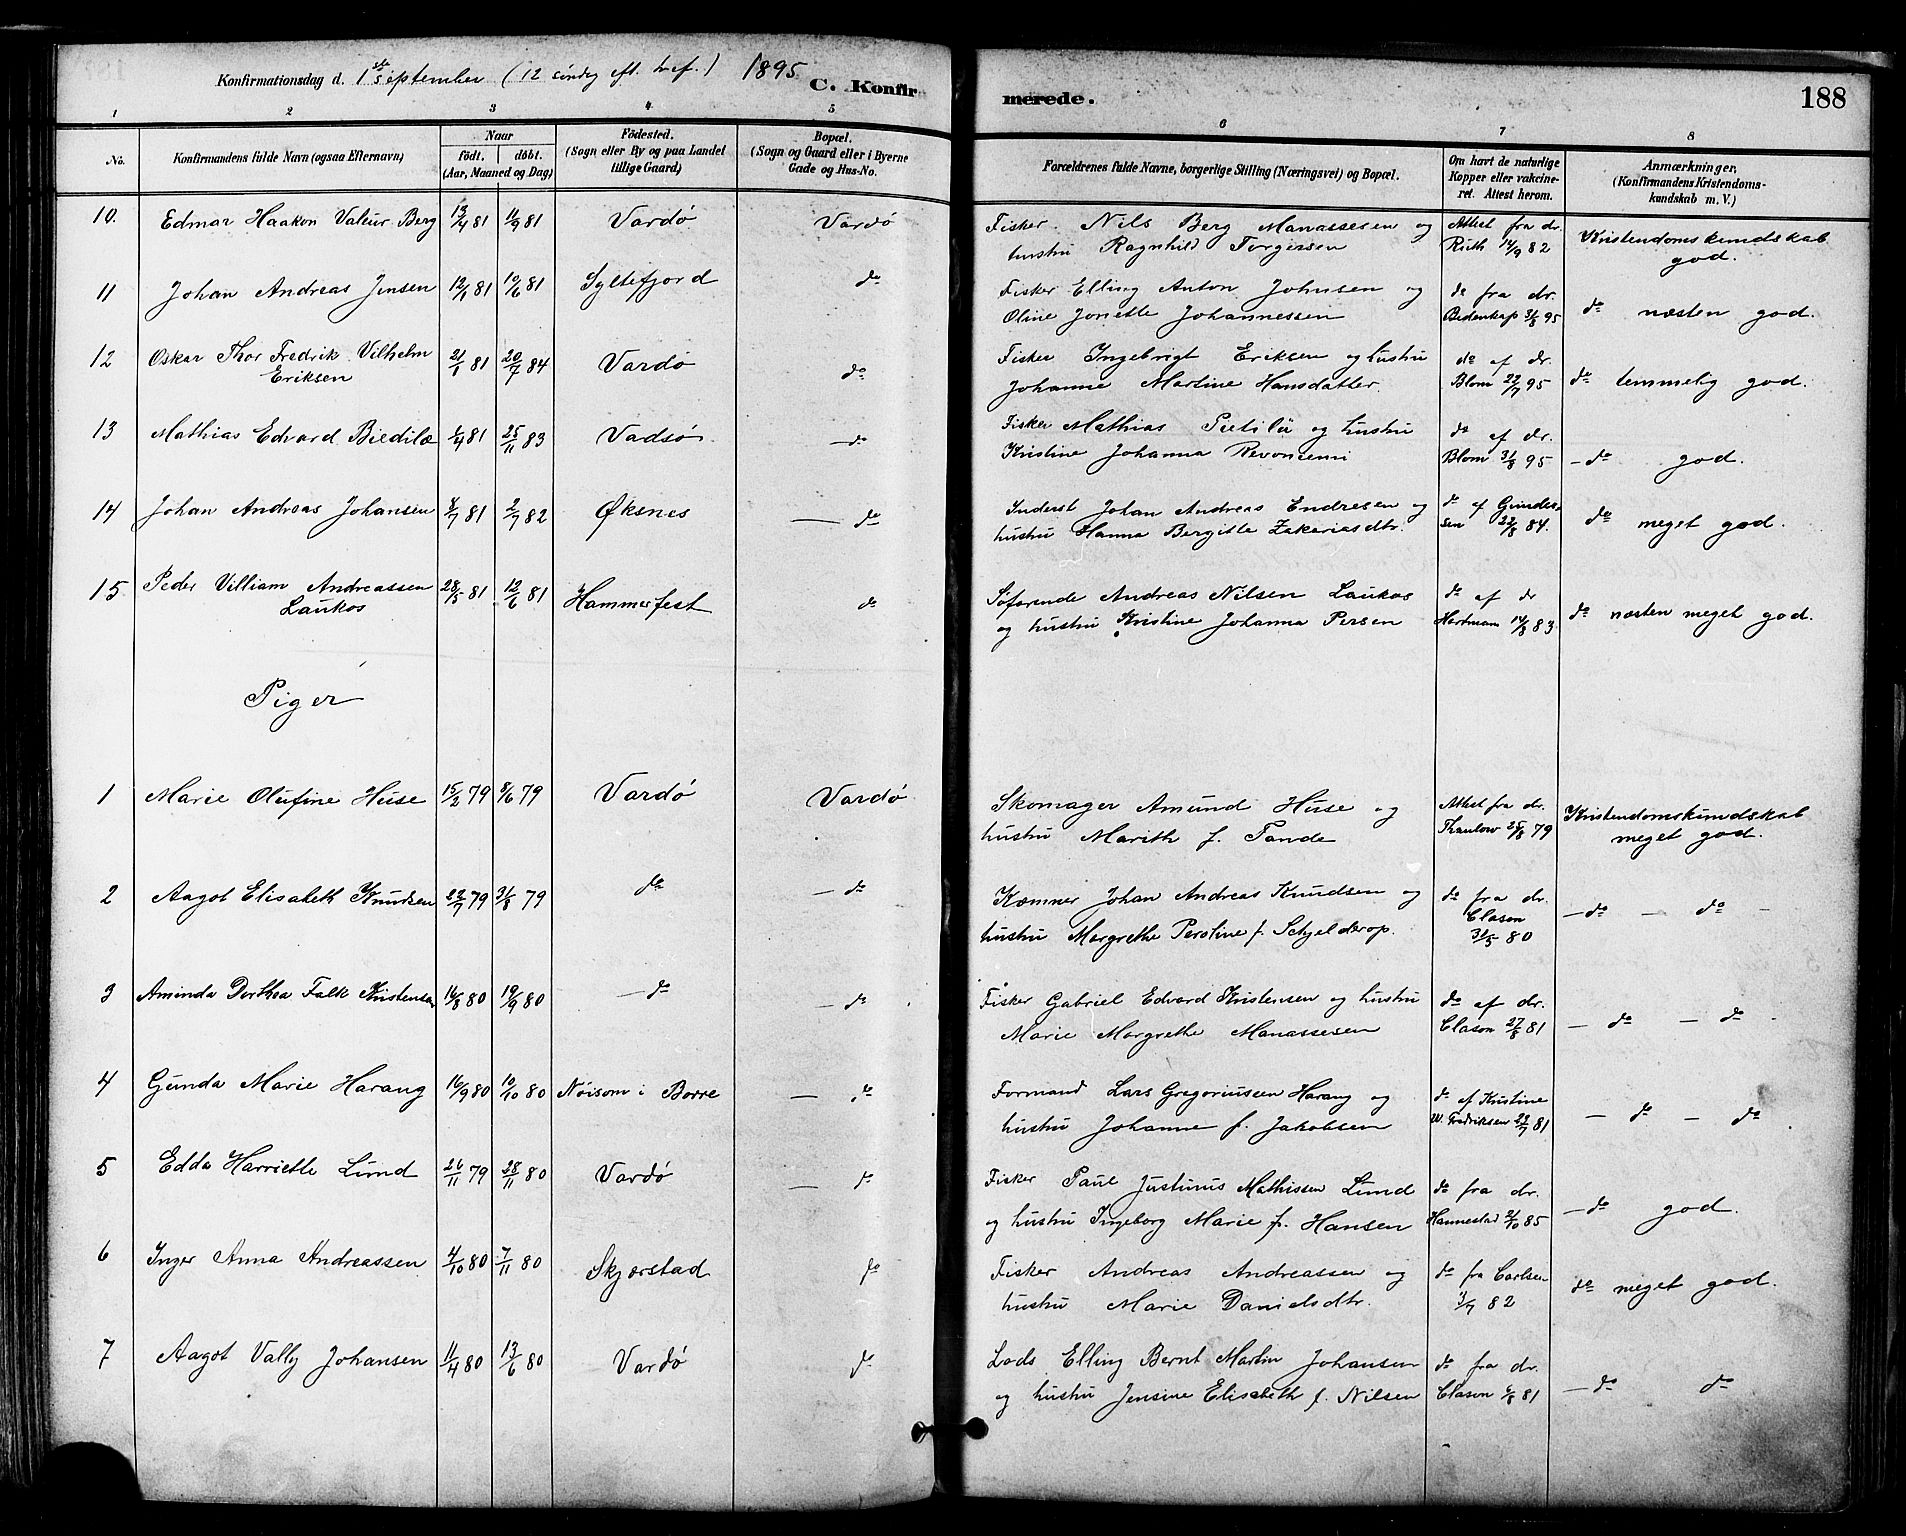 Konfirmationsdag d. 1ste September (12 søndag eft. tref.) 1895
C. Konfirmerede. 188
1 2 3 4 5 6 7 8
No. | Konfirmandens fulde Navn (ogsaa Efternavn) | Naar født. døbt. (Aar, Maaned og Dag) | Födested. (Sogn eller By og paa Landet tillige Gaard) | Bopæl. (Sogn og Gaard eller i Byerne Gade og Hus-No. | Forældrenes fulde Navne, borgerlige Stilling (Næringsvei) og Bopæl. | Om havt de naturlige Kopper eller vakcineret. Attest herom. | Anmærkninger, (Konfirmandens Kristendomskundskab m. V.)
10. Edmar Haakon Valeur Berg | 12/4 81 | 11/9 81 | Vardø | Vardø | Fisker Nils Berg Manassesen og hustru Ragnhild Torgersen | Attest fra dr. Ruth 14/9 82 | Kristendomskundskab god.
11 Johan Andreas Jensen | 12/1 81 | 10/6 81 | Syltefjord | do | Fisker Elling Anton Johnsen og Oline Jonette Johannessen | do fra dr. Bedenkap 31/8 95 | do næsten god.
12 Oskar Thor Fredrik Vilhelm Eriksen | 21/1 81 | 20/7 84 | Vardø | do | Fisker Ingebrigt Eriksen og hustru Johanne Martine Hansdatter. | do af dr. Blom 22/7 95 | do temmelig god.
13 Mathias Edvard Biedilæ | 1/4 81 | 25/11 83 | Vadsø | do | Fisker Mathias Pietilä og hustru Kristine Johanna | do af dr. Blom 31/8 95 | do god.
14 Johan Andreas Johansen | 8/7 81 | 2/7 82 | Øksnes | do | Inderst Johan Andreas Endresen og hustru Hanna Bergitte Zakariasdtr. | do af Gundersen 22/8 84. | do meget god.
15 Peder Villiam Andreassen Laukos | 28/5 81 | 12/6 81 | Hammerfest | do | Søfarende Andreas Nilsen Laukos og hustru Kristine Johanna Persen | do af dr Hartman 14/8 83 | do næsten meget god.
Piger
1 Marie Olufine Huse | 15/2 79 | 8/6 79 | Vardø | Vardø | Skomager Amund Huse og hustru Marith f. Tande | Attest fra dr. Thaulow 25/8 79 | Kristendomskundskab meget god.
2 Aagot Elisabeth Knudsen | 22/7 79 | 31/8 79 | do | do | Kæmner Johan Andreas Knudsen og hustru Margrethe Peroline f. Schjelderop. | do fra dr. Clason 31/5 80 | do do
3 Aminda Dorthea Falk Kristensen | 16/8 80 | 19/9 80 | do | do | Fisker Gabriel Edvard Kristensen og hustru Marie Margrethe Manassesen | do af dr. Clason 27/8 81 | do do
4 Gunda Marie Harang | 16/9 80 | 10/10 80 | Nøisom i Borre | do | Formand Lars Gregoriussen Harang og hustru Johanne f. Jakobsen | do af Kristine W. Fredriksen 22/7 81 | do do
5 Edda Harriette Lund | 26/11 79 | 28/11 80 | Vardø | do | Fisker Paul Justinus Mathissen Lund og hustru Ingeborg Marie f. Hansen | do fra dr. Hannestad 2/10 85 | do god.
6 Inger Anna Andreassen | 4/10 80 | 7/11 80 | Skjerstad | do | Fisker Andreas Andreassen og hustru Marie Danielsdtr. | do fra Carlsen 3/7 82 | do meget god.
7 Aagot Vally Johansen | 11/4 80 | 13/6 80 | Vardø | do | Lods Elling Bernt Martin Johansen og hustru Jensine Elisabeth f. Nilsen | do fra dr. Clason 6/8 81 | do do